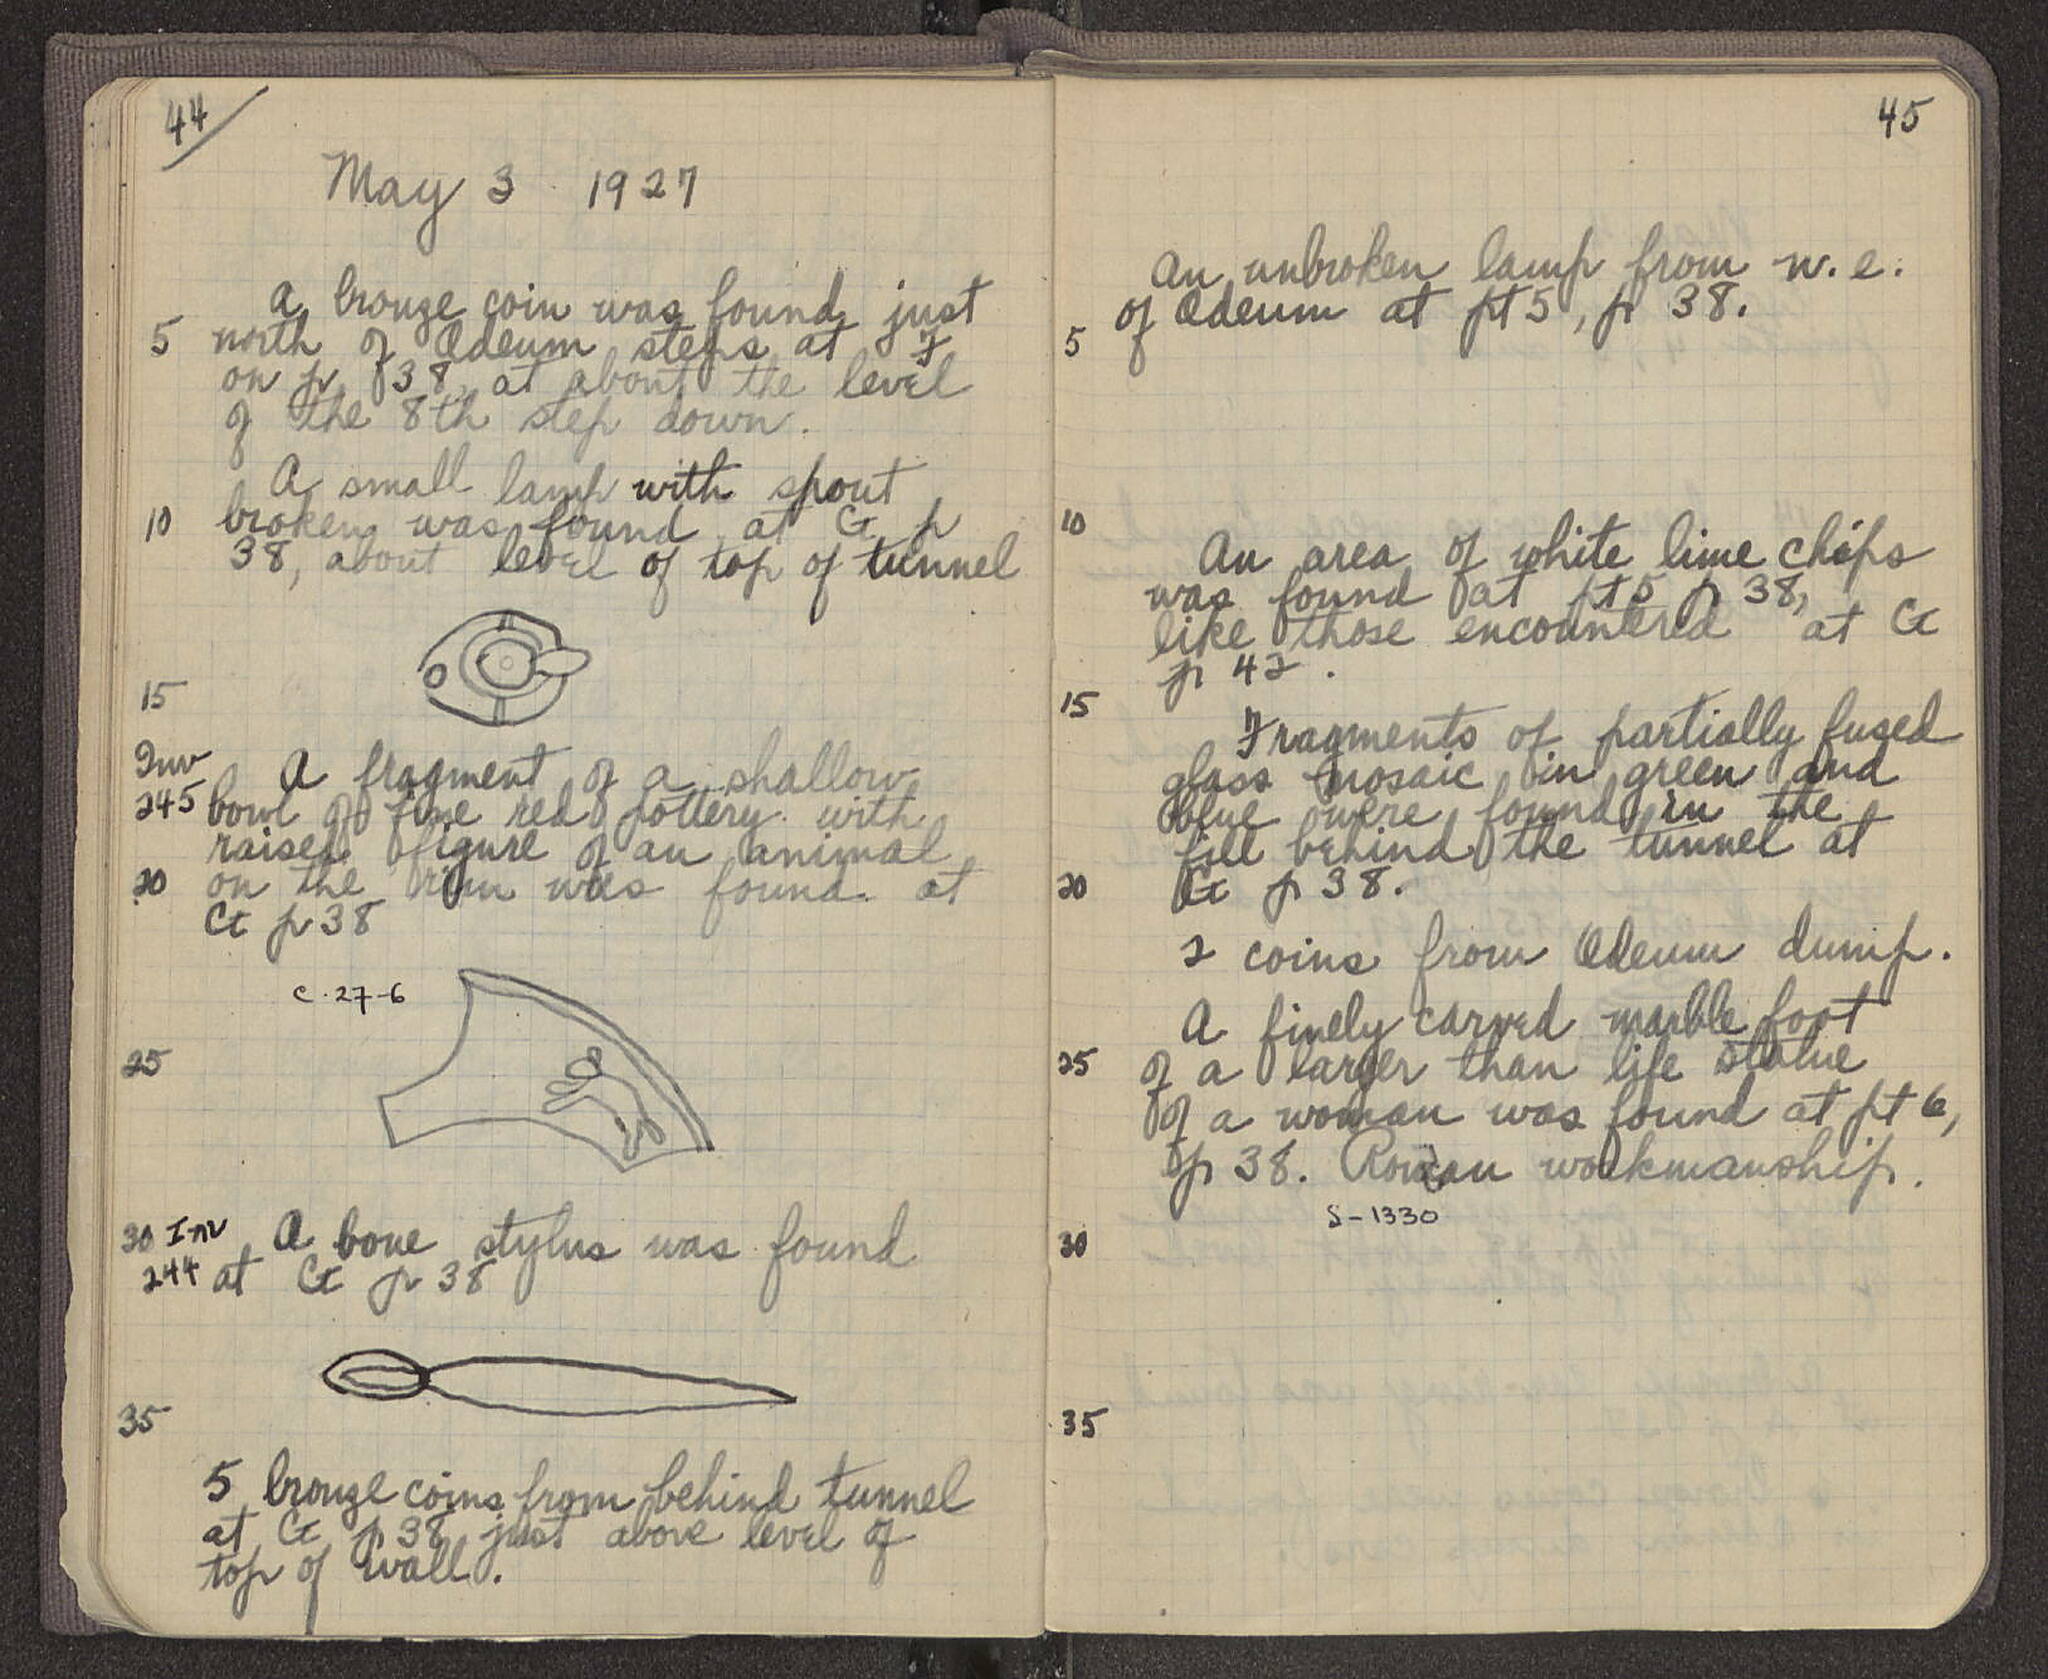 44
May 3 1927
A bronze coin was found just
5 north of Odeum steps at F
on p 38, at about the level
of the 8th step down.
A small lamp with spout
10 broken was found at G p
38, about level of top of tunnel
15
Inv A fragment of a shallow
245 bowl of fine red pottery with
raised figure of an animal
20 on the rim was found at
G p 38
C. 27-6
25
30 Inv A bone stylus was found
244 at G p 38
35
5 bronze coins from behind tunnel
at G p 38 just above level of
top of wall.
45
An unbroken lamp from n.e.
of Odeum at pt 5, p 38.
5
10
An area of white lime chips
was found at pt 5 p 38,
like those encountered at G
p 42.
15
Fragments of partially fused
glass mosaic in green and
blue were found in the
fill behind the tunnel at
20 G p 38.
2 coins from Odeum dump.
A finely carved marble foot
25 of a larger than life statue
of a woman was found at pt 6,
p 38. Roman workmanship.
S-1330
30
35